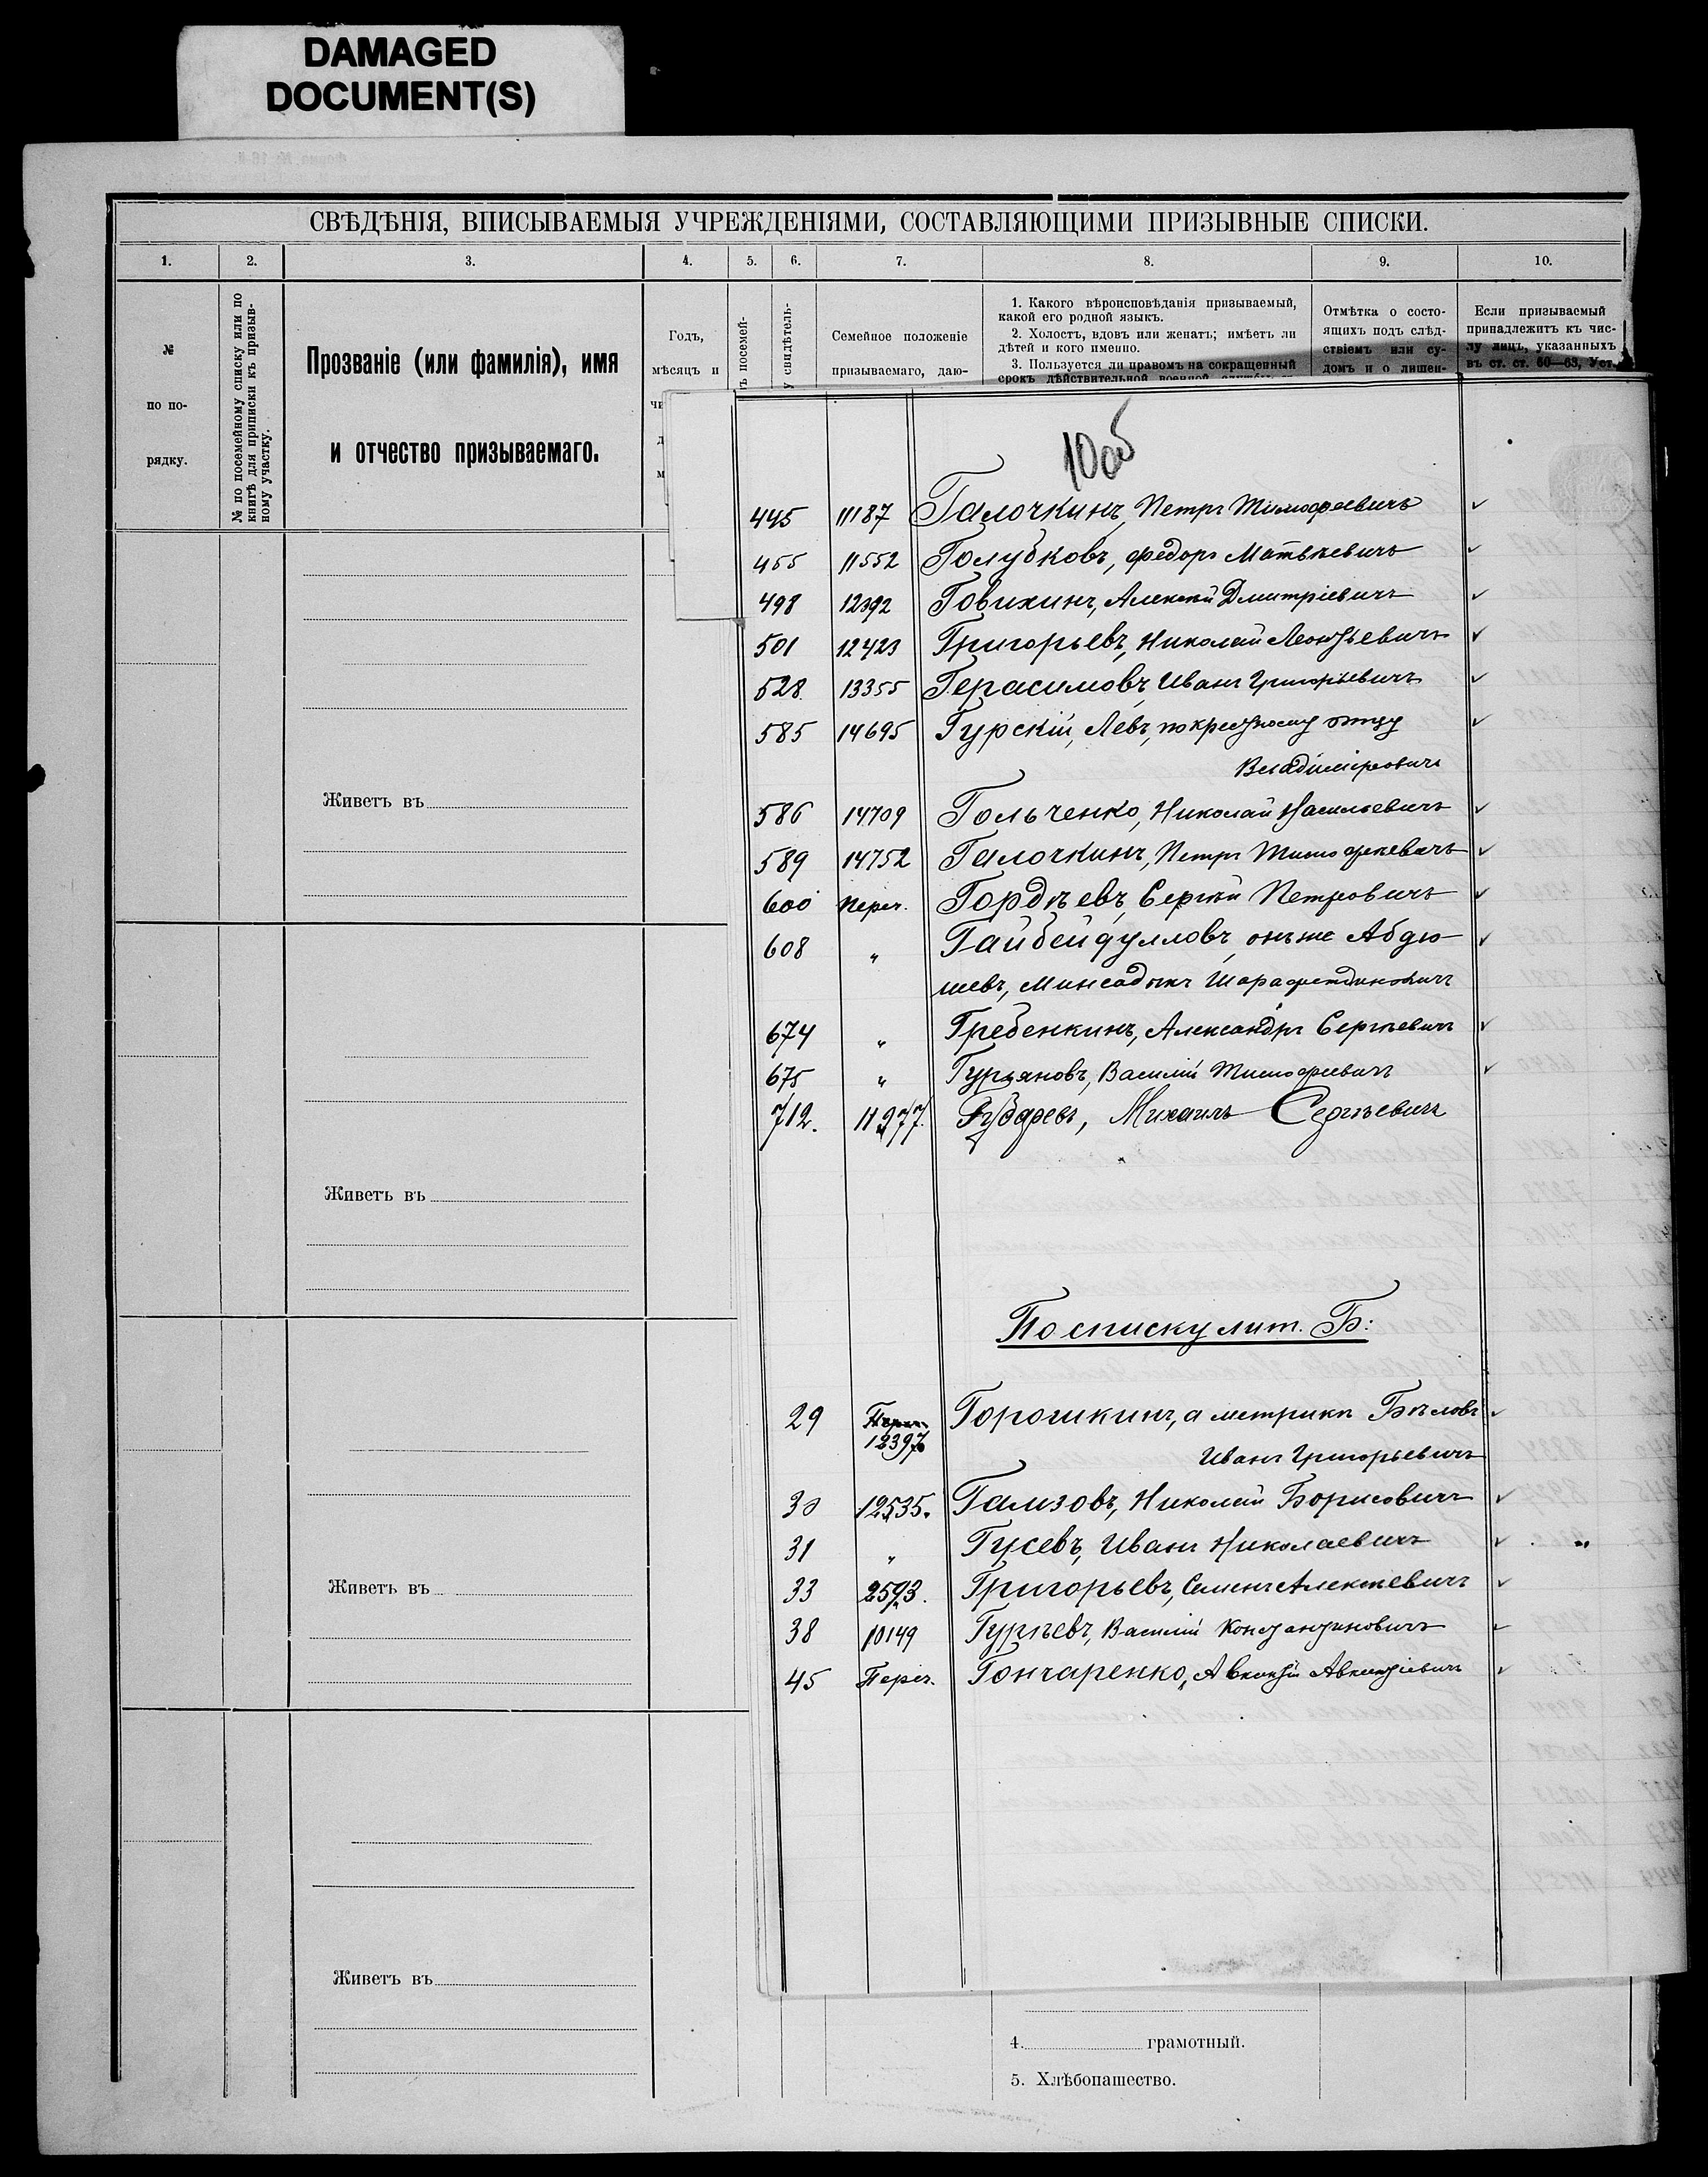 DAMAGED
DOCUMENT(S)
СВѢДѢНІЯ, ВПИСЫВАЕМЫЯ УЧРЕЖДЕНІЯМИ, СОСТАВЛЯЮЩИМИ ПРИЗЫВНЫЕ СПИСКИ.
1. 2. 3. 4. 5. 6. 7. 8. 9. 10.
№
по по-
рядку.
№ по посемейному списку или по
книгѣ для приписки къ призыв-
ному участку.
Прозваніе (или фамилія), имя
и отчество призываемаго.
Годъ,
мѣсяцъ и
посемей-
свидѣтель-
Семейное положеніе
призываемаго, даю-
1. Какого вѣроисповѣданія призываемый,
какой его родной языкъ.
2. Холостъ, вдовъ или женатъ; имѣетъ ли
дѣтей и кого именно.
3. Пользуется ли правомъ на сокращенный
срокъ дѣйствительной военной
Отмѣтка о состо-
ящихъ подъ слѣд-
ствіемъ или су-
домъ и о лишен-
Если призываемый
принадлежитъ къ чис-
лу лицъ, указанныхъ
въ ст. ст. 60—63, Уст.
10об
445 11187 Галочкинъ, Петръ Тимофеевичъ
455 11552 Голубковъ, Федоръ Матвѣевичъ
498 12392 Говихинъ, Алексѣй Дмитріевичъ
501 12423 Григорьевъ, Николай Леонтьевичъ
528 13355 Герасимовъ, Иванъ Григорьевичъ
585 14695 Гурскій, Левъ, по крестному отцу
Владиміровичъ
586 14709 Гольченко, Николай Васильевичъ
589 14752 Галочкинъ, Петръ Тимофеевичъ
600 Переч. Гордѣевъ, Сергѣй Петровичъ
608 " Гайбейдулловъ, онъ же Абдю-
шевъ, Минсадыкъ Шарафетдиновичъ
674 " Гребенкинъ, Александръ Сергѣевичъ
675 " Гурьяновъ, Василій Тимофеевичъ
712. 11977. Михаилъ Сергѣевичъ
По списку лит. Б:
29 12397 Горошкинъ, а метрикѣ Бѣловъ
Иванъ Григорьевичъ
30 12535. Гализовъ, Николай Борисовичъ
31 " Гусевъ, Иванъ Николаевичъ
33 2593. Григорьевъ, Семенъ Алексѣевичъ
38 10149 Гурѣевъ, Василій Константиновичъ
45 Переч. Гончаренко, Авксентій Авксентіевичъ
Живетъ въ
Живетъ въ
Живетъ въ
Живетъ въ
4. грамотный.
5. Хлѣбопашество.